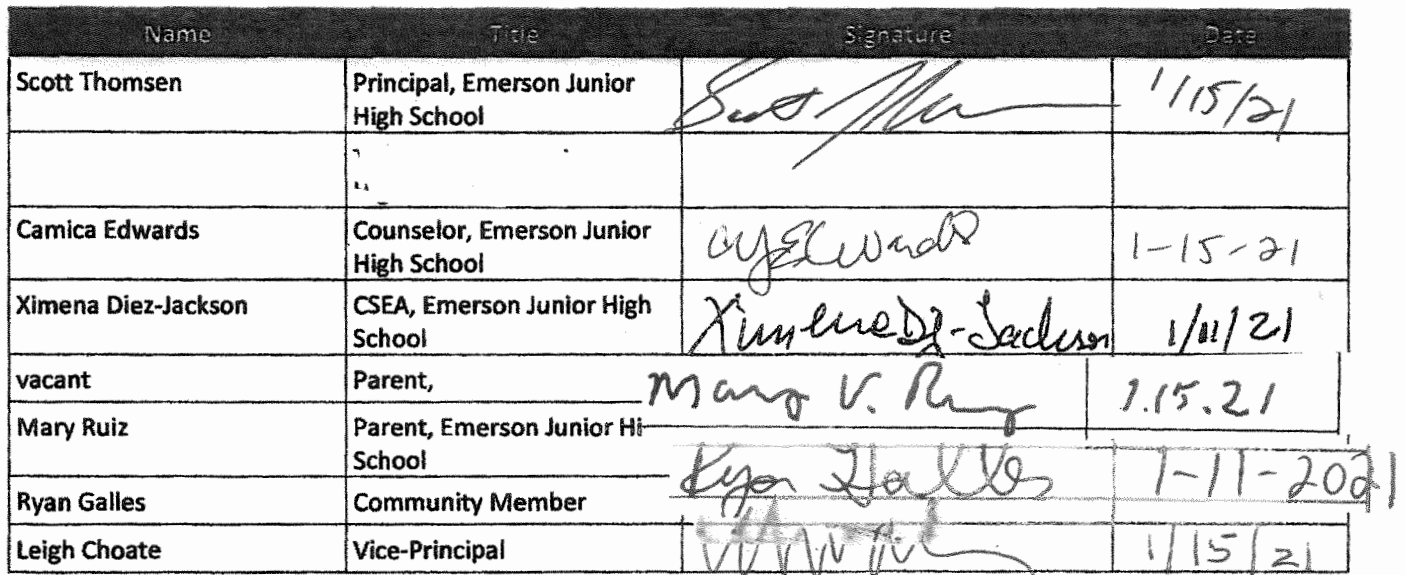 Name Title Signature Date
Scott Thomsen Principal, Emerson Junior 1/15/21
High School
Camica Edwards Counselor, Emerson Junior CyEdwards 1-15-21
High School
Ximena Diez-Jackson CSEA, Emerson Junior High Ximena Dz-Jackson 1/11/21
School
vacant Parent, Mary V. Ruiz 1.15.21
Mary Ruiz Parent, Emerson Junior Hi
School Ryan Galles 1-11-2021
Ryan Galles Community Member
Leigh Choate Vice-Principal 1/15/21